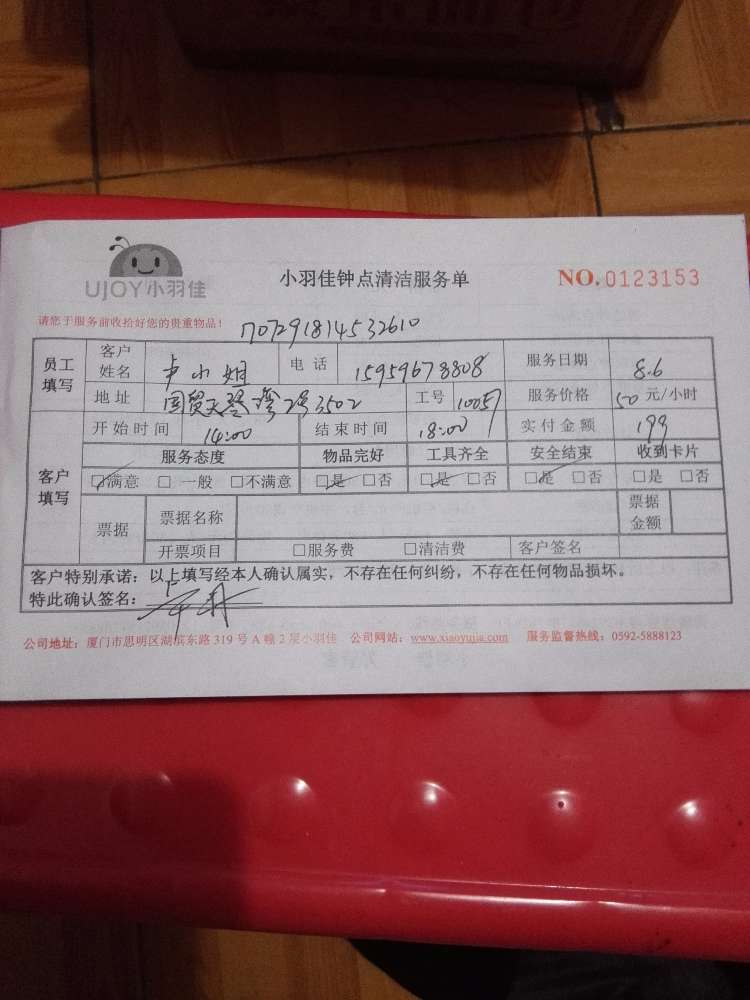 UJOY小羽佳
小羽佳钟点清洁服务单
NO.0123153
请您于服务前收拾好您的贵重物品!
1707291814532610
员工填写 客户姓名 卢小姐 电话 15959678808 服务日期 8.6
地址 国贸天琴湾2号3502 工号 10057 服务价格 50元/小时
客户填写 开始时间 14:00 结束时间 18:00 实付金额 199
服务态度 物品完好 工具齐全 安全结束 收到卡片
☑满意 □一般 □不满意 ☑是 □否 ☑是 □否 ☑是 □否 □是 □否
票据 票据名称 票据金额
开票项目 □服务费 □清洁费 客户签名
客户特别承诺:以上填写经本人确认属实,不存在任何纠纷,不存在任何物品损坏。
特此确认签名:
公司地址:厦门市思明区湖滨东路319号A幢2层小羽佳 公司网站:www.xiaoyujia.com 服务监督热线:0592-5888123